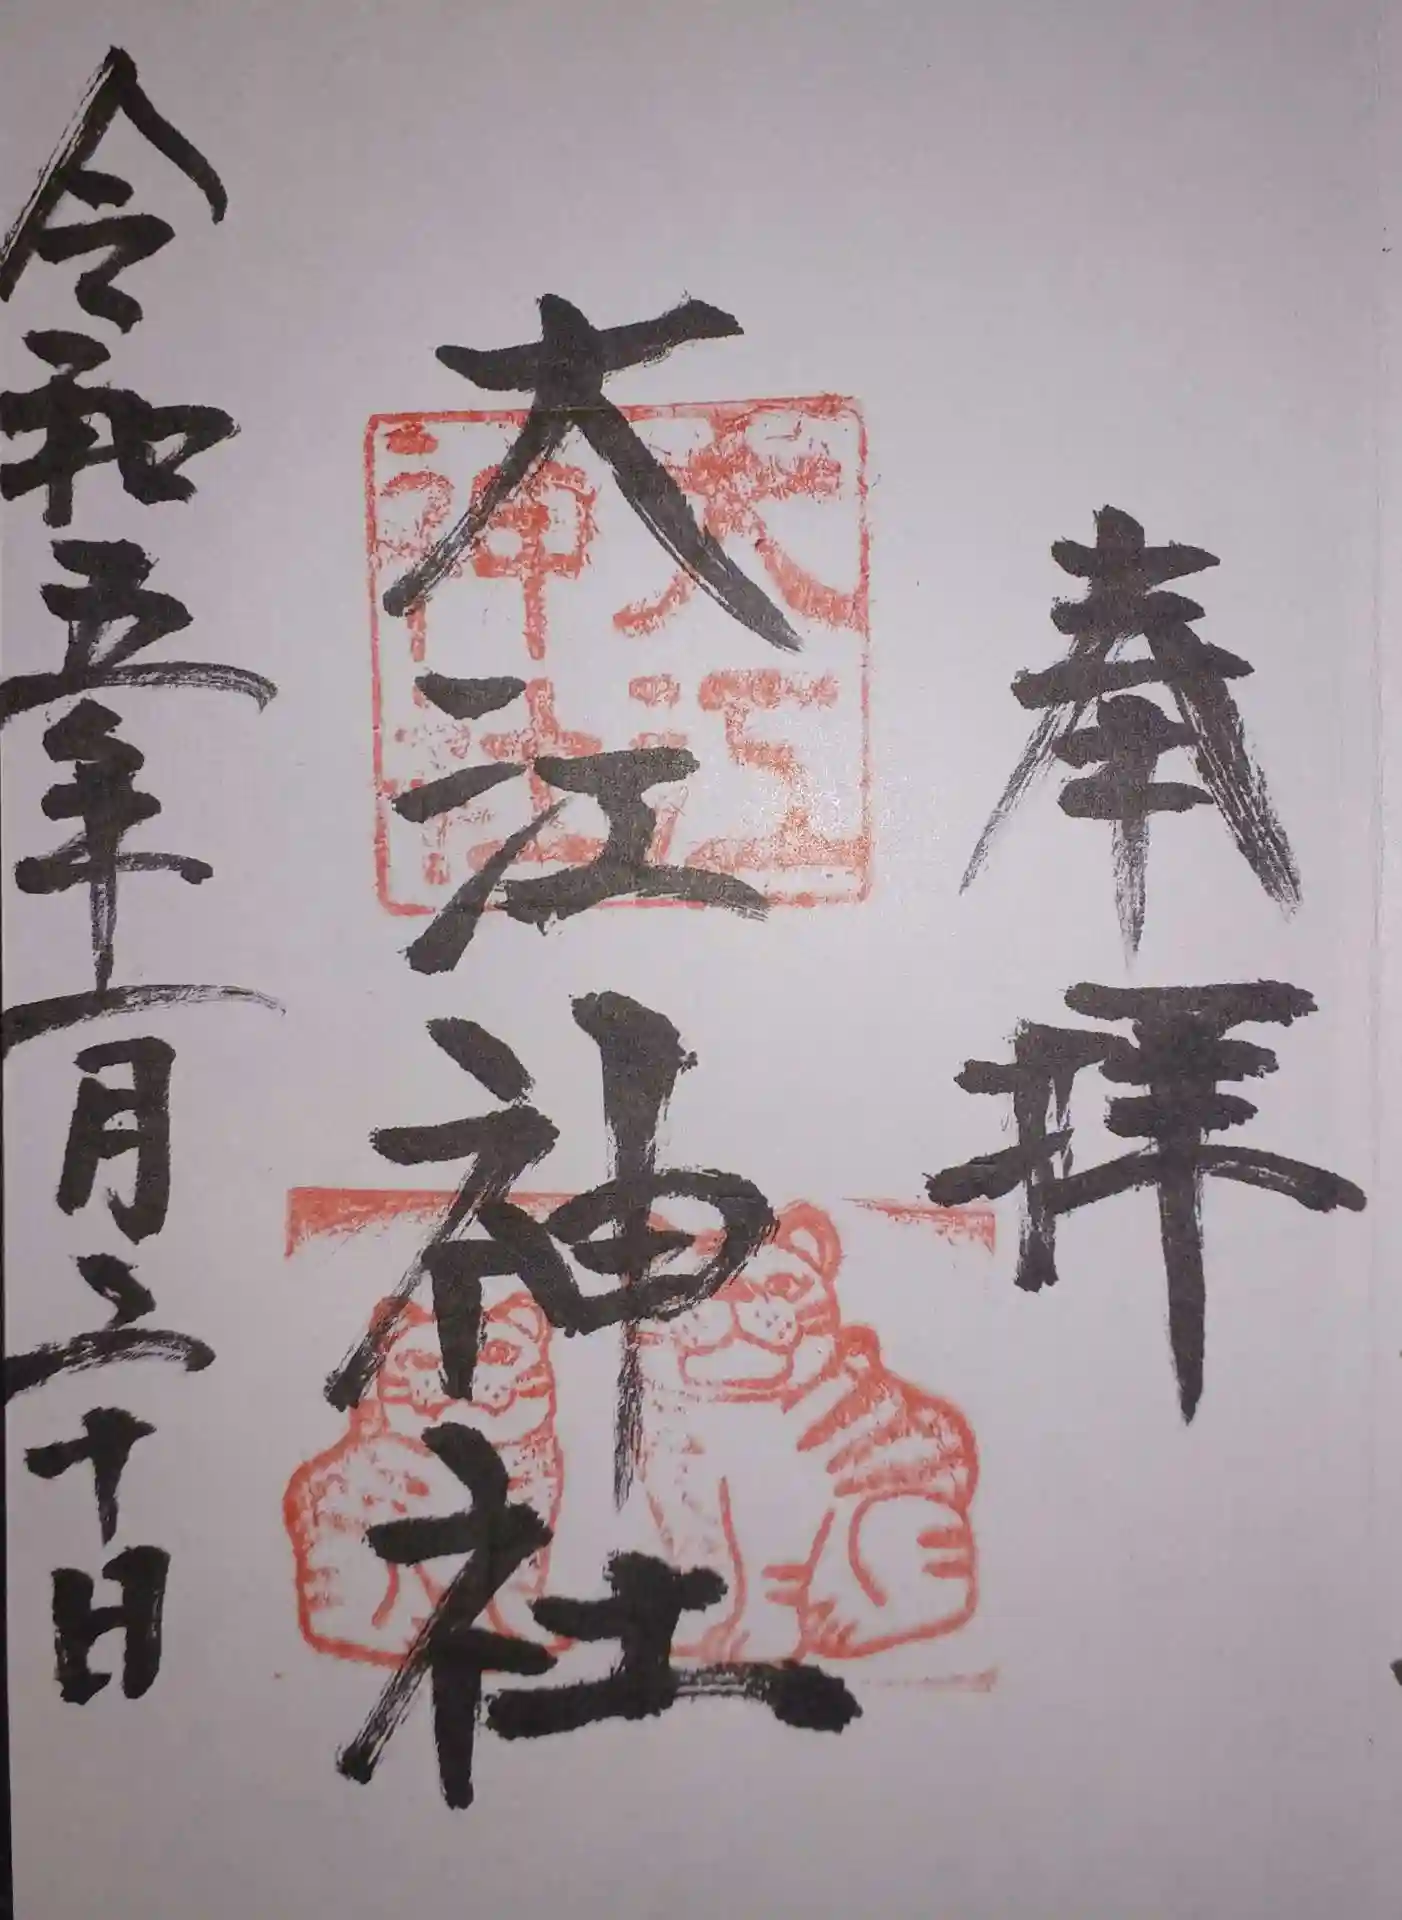 奉拝
大江神社
大江神社
令和五年一月二十日